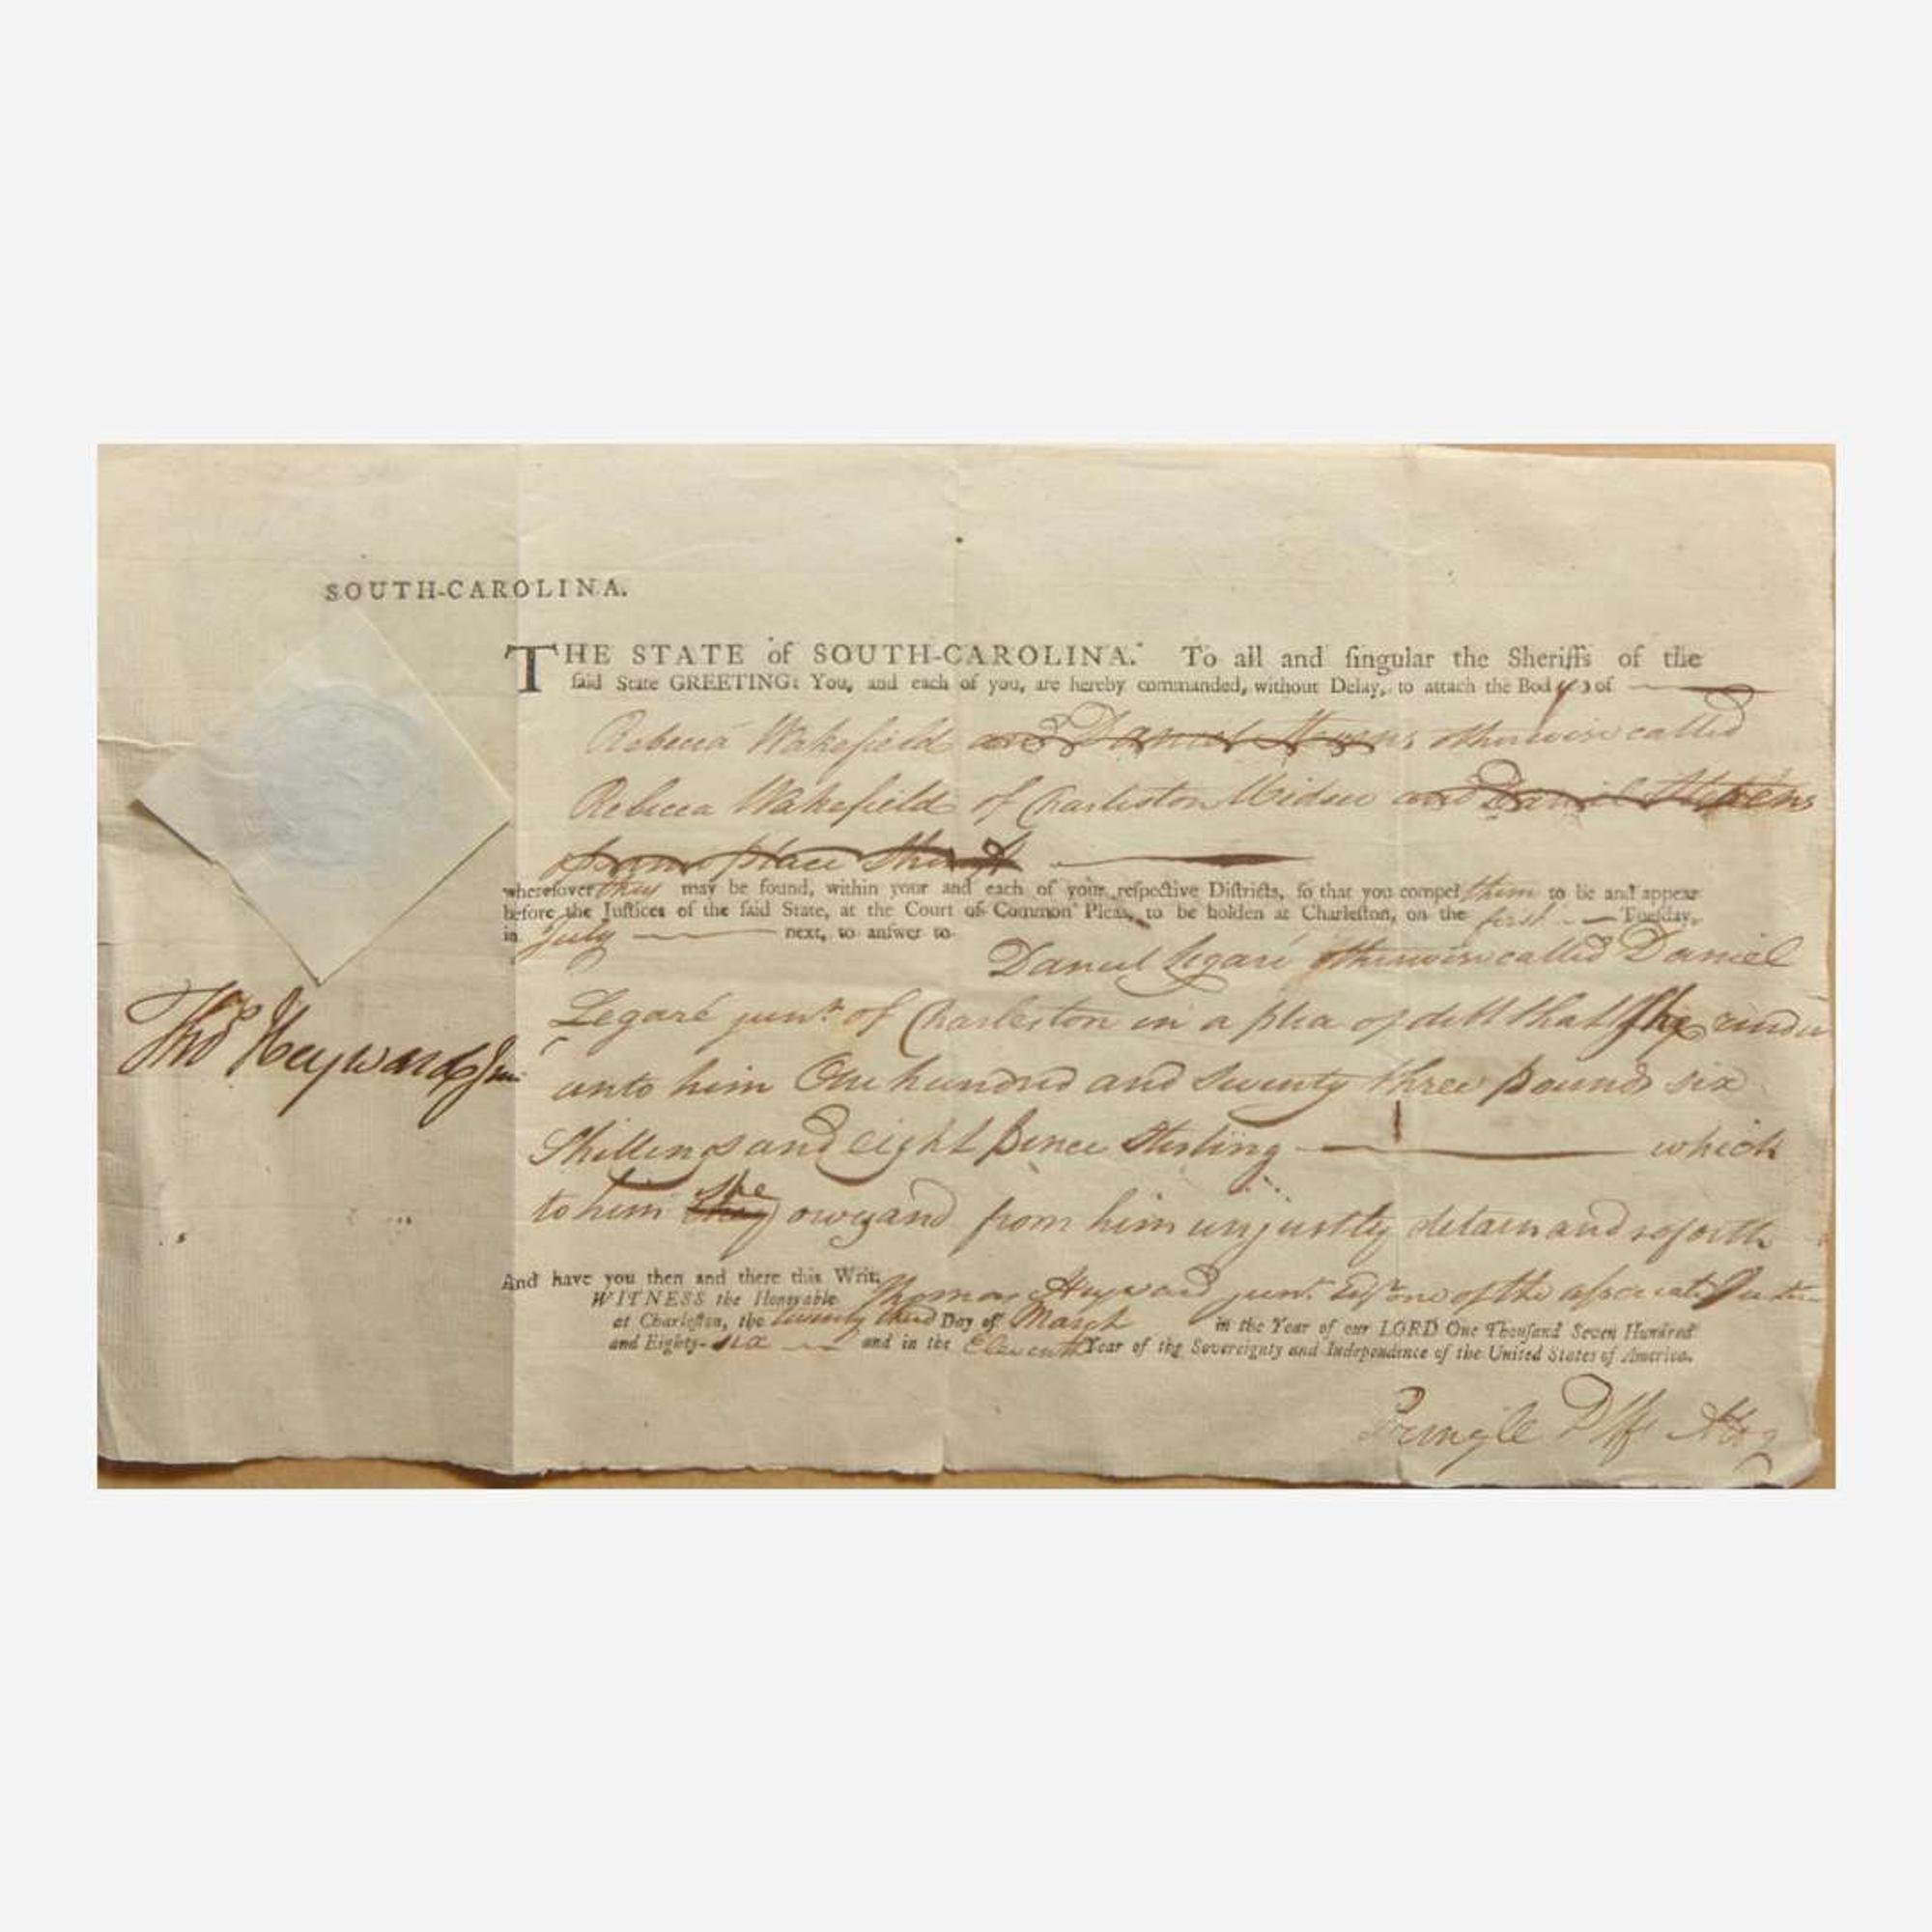 SOUTH-CAROLINA.
THE STATE of SOUTH-CAROLINA. To all and ſingular the Sheriffs of the
ſaid State GREETING: You, and each of you, are hereby commanded, without Delay, to attach the Body of
Rebecca Wakefield and Daniel Stevens otherwise called
Rebecca Wakefield of Charleston Widow and Daniel Stevens
of same place
whereſoever they may be found, within your and each of your reſpective Diſtricts, ſo that you compel them to be and appear
before the Juſtices of the ſaid State, at the Court of Common Pleas, to be holden at Charleſton, on the first Tueſday,
in July next, to anſwer to
Daniel Legaré otherwise called Daniel
Legaré junr. of Charleston in a plea of debt that She render
unto him One hundred and twenty three pounds six
Shillings and eight pence Sterling which
to him they she owes and from him unjustly detain and so forth
And have you then and there this Writ.
WITNESS the Honorable Thomas Heyward junr. Esqr one of the associate Justices
at Charleſton, the twenty third Day of March in the Year of our LORD One Thouſand Seven Hundred
and Eighty-six and in the Eleventh Year of the Sovereignty and Independence of the United States of America.
Thos Heyward Jun
Pringle Plffs Atty